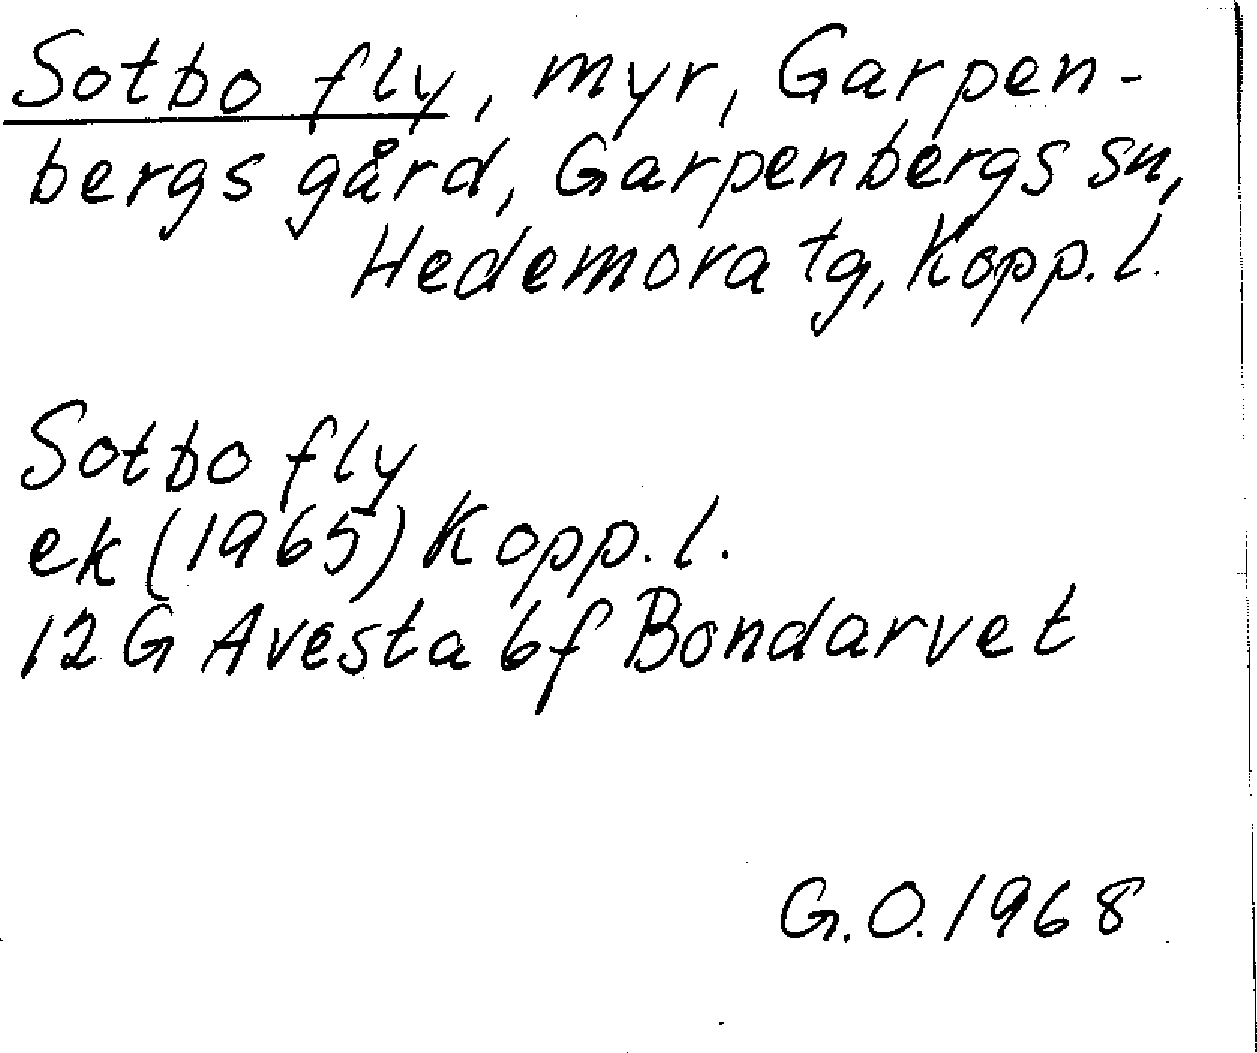 Sotbo fly, myr, Garpen-
bergs gård, Garpenbergs sn,
Hedemora tg, Kopp. l.
Sotbo fly
ek (1965) Kopp. l.
12 G Avesta 6f Bondarvet
G. O. 1968